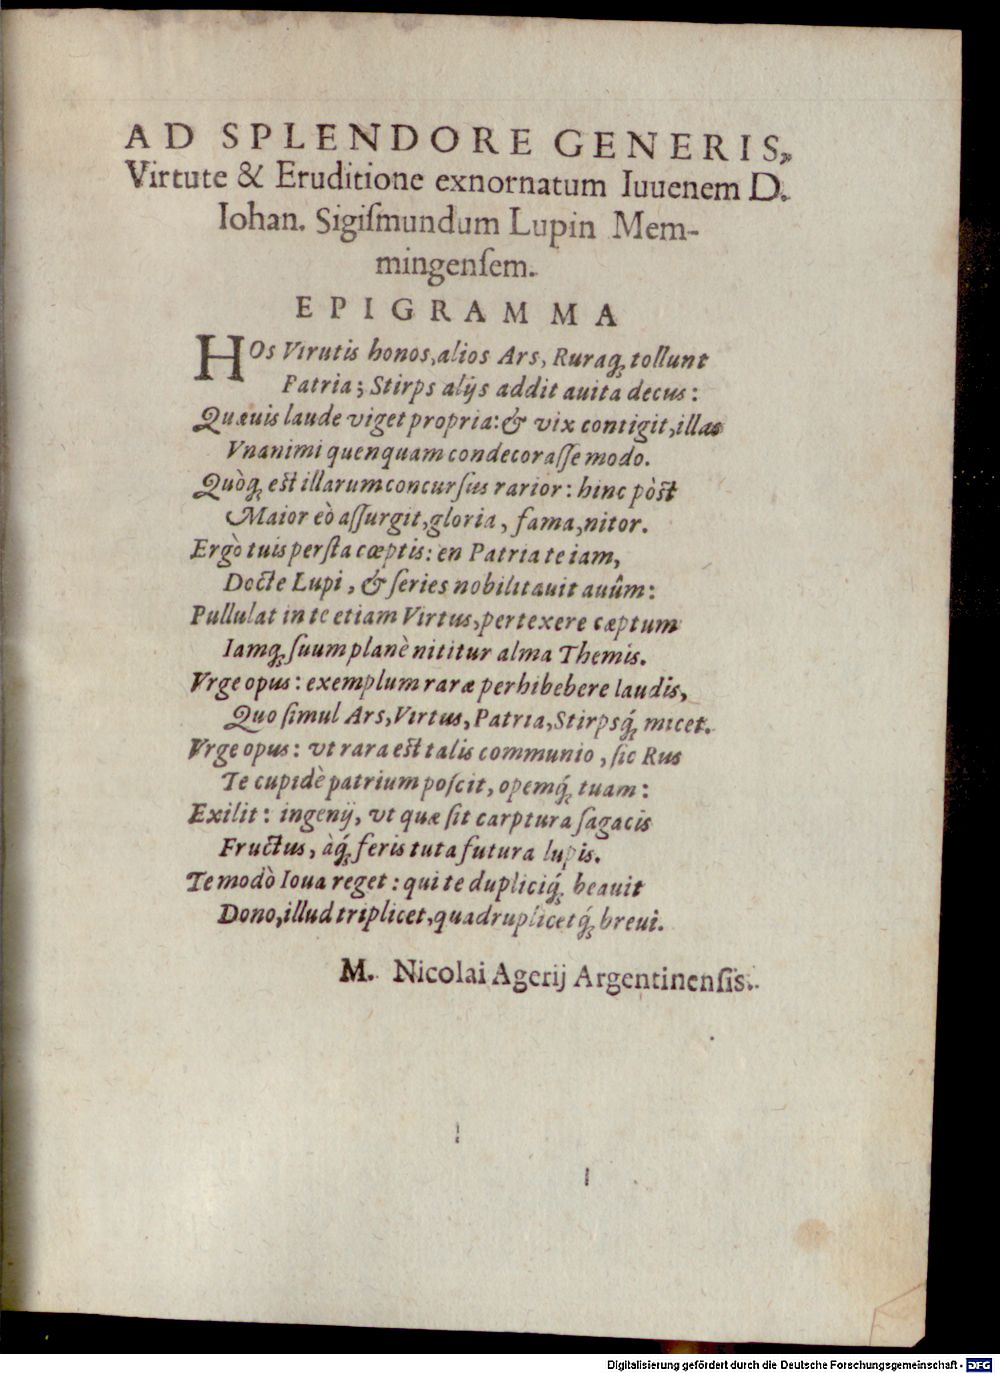 AD SPLENDORE GENERIS,
Virtute & Eruditione exnornatum Iuuenem D.
Iohan. Sigiſmundum Lupin Mem-
mingenſem.
EPIGRAMMA
HOs Virutis honos, alios Ars, Ruraq́; tollunt
Patria; Stirps alijs addit auita decus:
Quæuis laude viget propria: & vix contigit, illas
Vnanimi quenquam condecoraſſe modo.
Quòq́; est illarum concurſus rarior: hinc pòst
Maior eò aſſurgit, gloria, fama, nitor.
Ergò tuis perſta cœptis: en Patria te iam,
Docte Lupi, & ſeries nobilitauit auûm:
Pullulat in te etiam Virtus, pertexere cæptum
Iamq́; ſuum planè nititur alma Themis.
Vrge opus: exemplum raræ perhibebere laudis,
Quo ſimul Ars, Virtus, Patria, Stirpsq́; micet.
Vrge opus: vt rara est talis communio, ſic Rus
Te cupidè patrium poſcit, opemq́; tuam:
Exilit: ingenij, vt quæ ſit carptura ſagacis
Fructus, àq́; feris tuta futura lupis.
Te modò Ioua reget: qui te dupliciq́; beauit
Dono, illud triplicet, quadruplicetq́; breui.
M. Nicolai Agerij Argentinenſis.
Digitalisierung gefördert durch die Deutsche Forschungsgemeinschaft - DFG